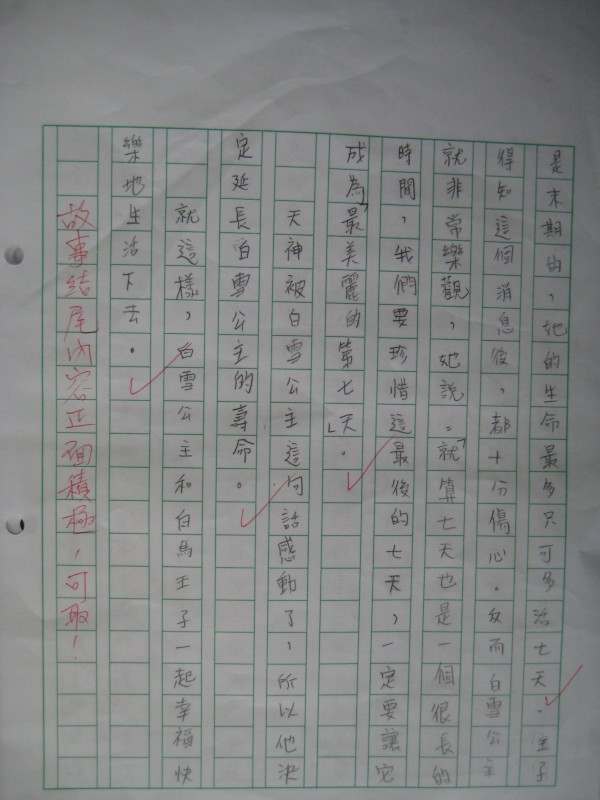 是末期的，她的生命最多只可多活七天。王子
得知這個消息後，都十分傷心。反而白雪公主
就非常樂觀，她說。「就算七天也是一個很長的
時間，我們要珍惜這最後的七天，一定要讓它
成為「最美麗的第七天」。
天神被白雪公主這句話感動了，所以他決
定延長白雪公主的壽命。
就這樣，白雪公主和白馬王子一起幸福快
樂地生活下去。
故事結尾內容正面積極，可取！